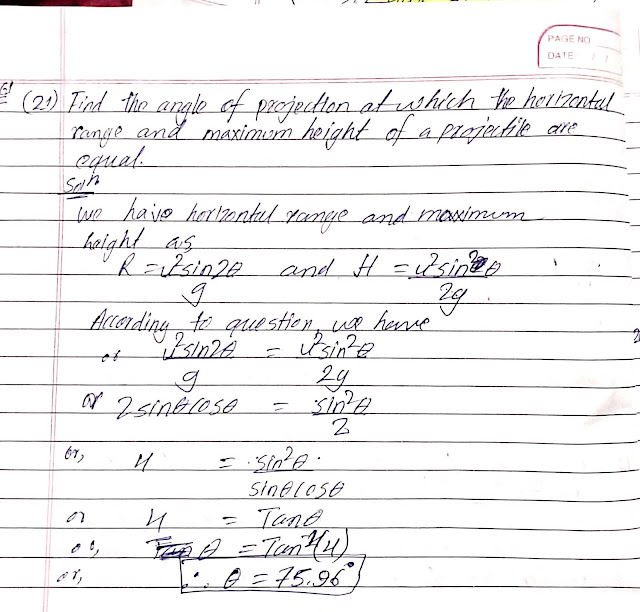 PAGE NO
DATE / /
(21) Find the angle of projection at which the horizontal
range and maximum height of a projectile are
equal.
Solⁿ
we have horizontal range and maximum
height as
R = u²sin2θ/g and H = u²sin²θ/2g
According to question, we have
or u²sin2θ/g = u²sin²θ/2g
or 2sinθcosθ = sin²θ/2
or, 4 = sin²θ/sinθcosθ
or 4 = Tanθ
or, θ = Tan⁻¹(4)
or, ∴ θ = 75.96°